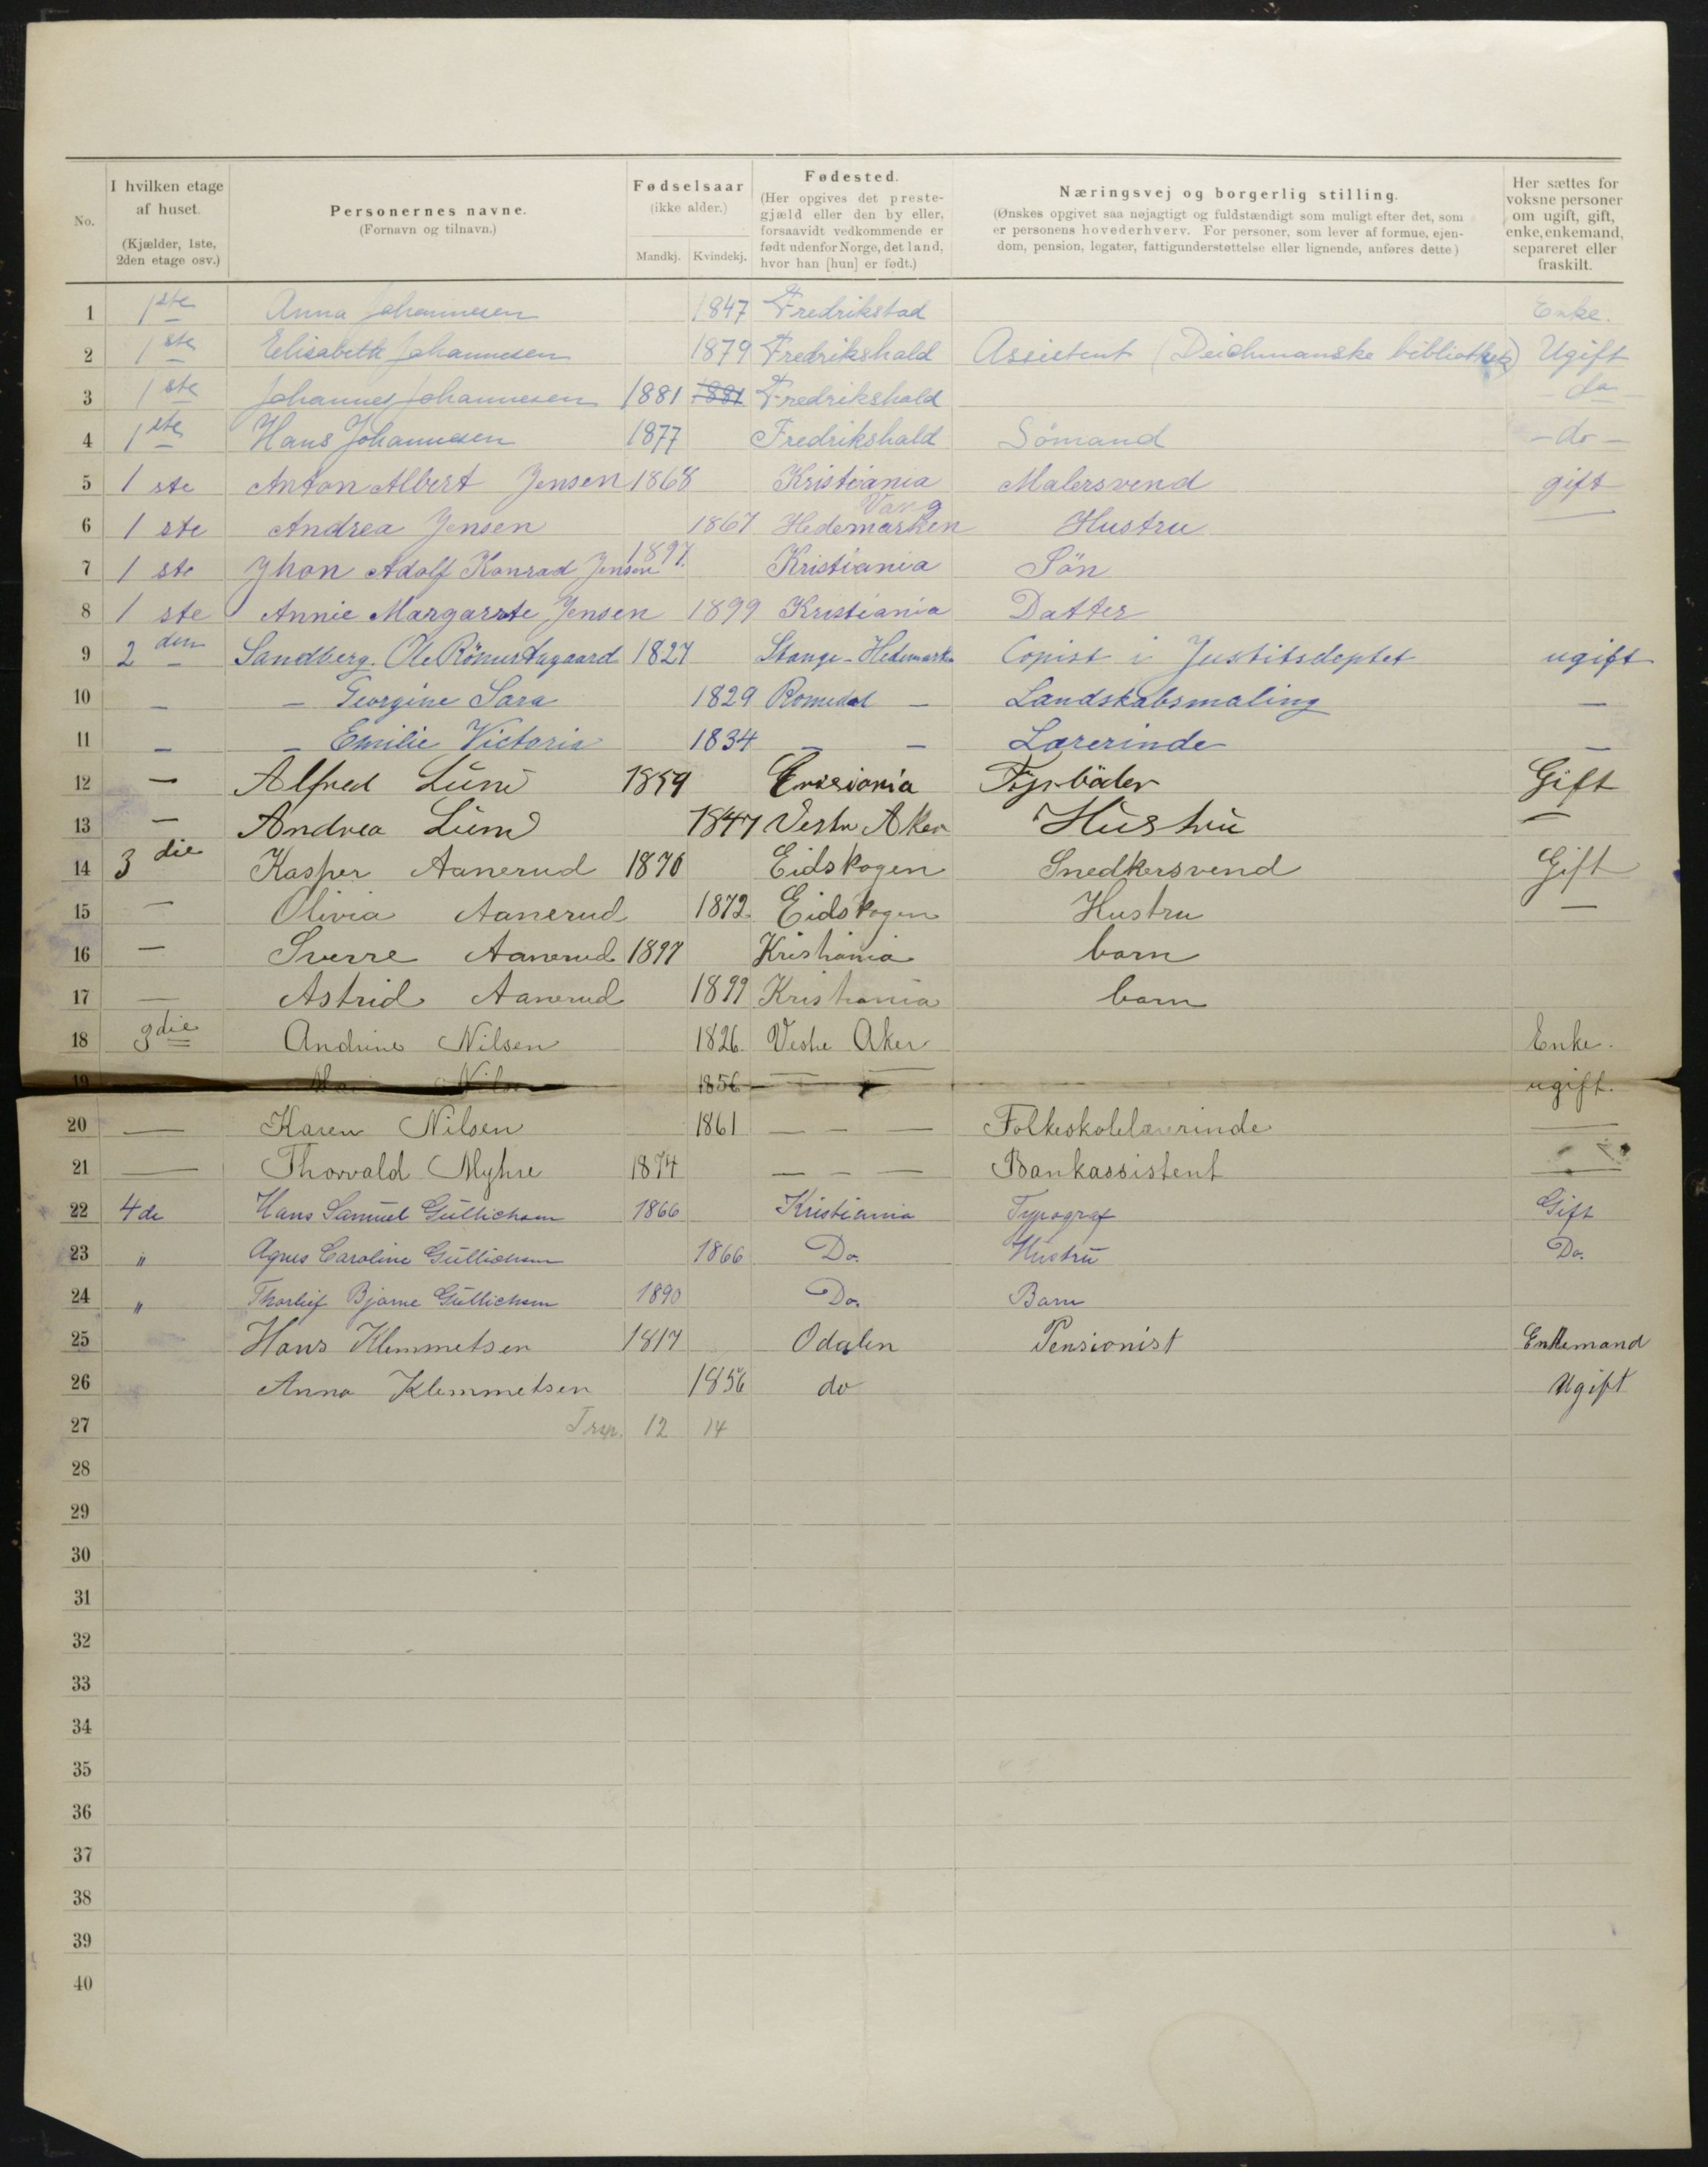 No.
I hvilken etage af huset. (Kjælder, 1ste, 2den etage osv.)
Personernes navne. (Fornavn og tilnavn.)
Fødselsaar (ikke alder.) Mandkj. Kvindekj.
Fødested. (Her opgives det prestegjæld eller den by eller, forsaavidt vedkommende er født udenfor Norge, det land, hvor han [hun] er født.)
Næringsvej og borgerlig stilling. (Ønskes opgivet saa nøjagtigt og fuldstændigt som muligt efter det, som er personens hovederhverv. For personer, som lever af formue, ejendom, pension, legater, fattigunderstøttelse eller lignende, anføres dette)
Her sættes for voksne personer om ugift, gift, enke, enkemand, separeret eller fraskilt.
1 1ste Anna Johannesen 1847 Fredrikstad Enke.
2 1ste Elisabeth Johannesen 1879 Fredrikshald Assistent (Deichmanske bibliothek) Ugift
3 1ste Johannes Johannesen 1881 1881 Fredrikshald do
4 1ste Hans Johannesen 1877 Fredrikshald Sömand - do -
5 1 ste Anton Albert Jensen 1868 Kristiania Malersvend gift
6 1 ste Andrea Jensen 1867 Vang Hedemarken Hustru —
7 1 ste Jhon Adolf Konrad Jensen 1897. Kristiania Sön
8 1 ste Annie Margarete Jensen 1899 Kristiania Datter
9 2 den Sandberg. Ole 1827 Stange - Hedemarken Copist i Justitsdeptet ugift
10 — — Georgine Sara 1829 Romedal — Landskabsmaling —
11 — — Emilie Victoria 1834 — — Lærerinde —
12 — Alfred Lund 1859 Fyrböder Gift
13 — Andrea Lund 1847 Vestre Aker Hustru —
14 3 die Kasper Aanerud 1870 Eidskogen Snedkersvend Gift
15 — Olivia Aanerud 1872 Eidskogen Hustru —
16 — Sverre Aanerud 1897 Kristiania barn
17 — Astrid Aanerud 1899 Kristiania barn
18 3die Andrine Nilsen 1826. Vestre Aker Enke.
19 1856 — — ugift.
20 — Karen Nilsen 1861 — - — Folkeskolelærerinde —
21 — Thorvald Myhre 1874 — - — Bankassistent —
22 4de Hans Samuel Gullichsen 1866 Kristiania Typograf Gift
23 " Agnes Caroline Gullichsen 1866 Do. Hustru Do.
24 " Thorleif Bjarne Gullichsen 1890 Do. Barn
25 Hans Klemmetsen 1817 Odalen Pensionist Enkemand
26 Anna Klemmetsen 1856 do Ugift
27 12 14
28
29
30
31
32
33
34
35
36
37
38
39
40